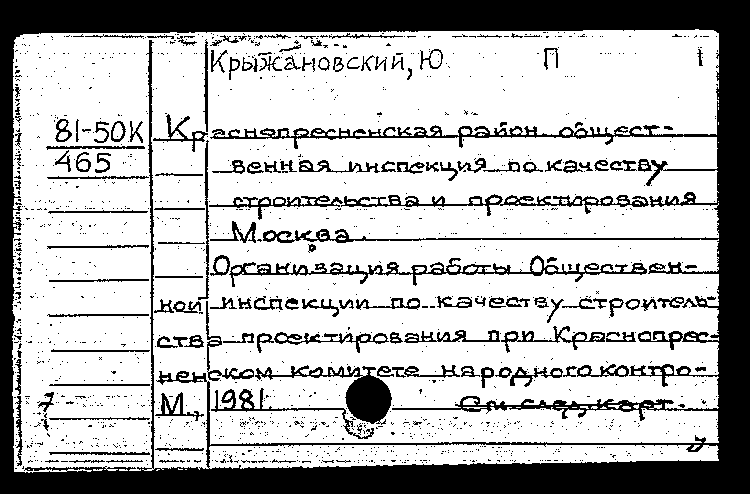 Крыжановский, Ю П 1
81-50К
465
Краснопресненская район общест-
венная инспекция по качеству
строительства и проектирования
Москва.
Организация работы Обществен-
ной инспекции по качеству строитель-
ства проектирования при Краснопрес-
ненском комитете народного контро-
М., 1981.
См. след. карт.